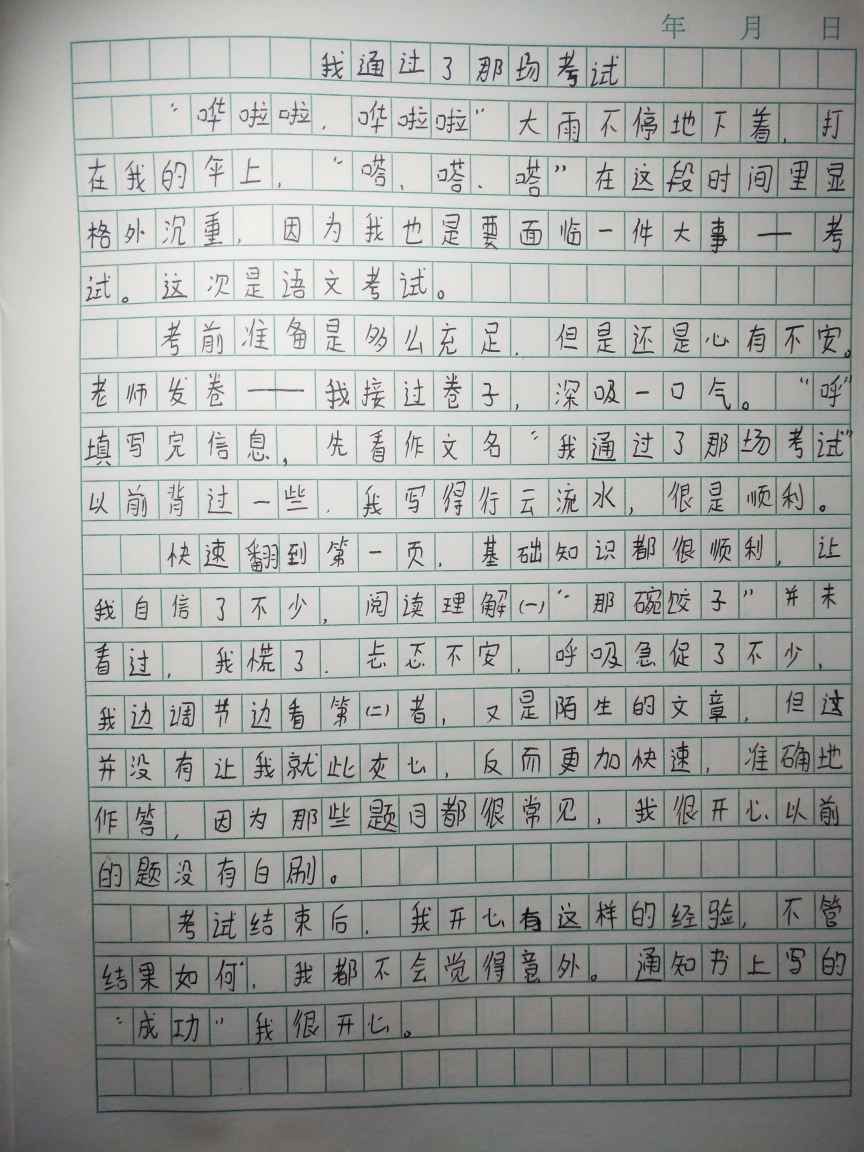 年 月 日
我通过了那场考试
“哗啦啦，哗啦啦”大雨不停地下着，打
在我的伞上，“嗒、嗒、嗒”在这段时间里显
格外沉重，因为我也是要面临一件大事——考
试。这次是语文考试。
考前准备是多么充足，但是还是心有不安。
老师发卷——我接过卷子，深吸一口气。“呼”
填写完信息，先看作文名“我通过了那场考试”
以前背过一些，我写得行云流水，很是顺利。
快速翻到第一页，基础知识都很顺利，让
我自信了不少，阅读理解(一)“那碗饺子”并未
看过，我慌了，忐忑不安，呼吸急促了不少，
我边调节边看第(二)者，又是陌生的文章，但这
并没有让我就此灰心，反而更加快速，准确地
作答，因为那些题目都很常见，我很开心以前
的题没有白刷。
考试结束后，我开心有这样的经验，不管
结果如何，我都不会觉得意外。通知书上写的
“成功”我很开心。